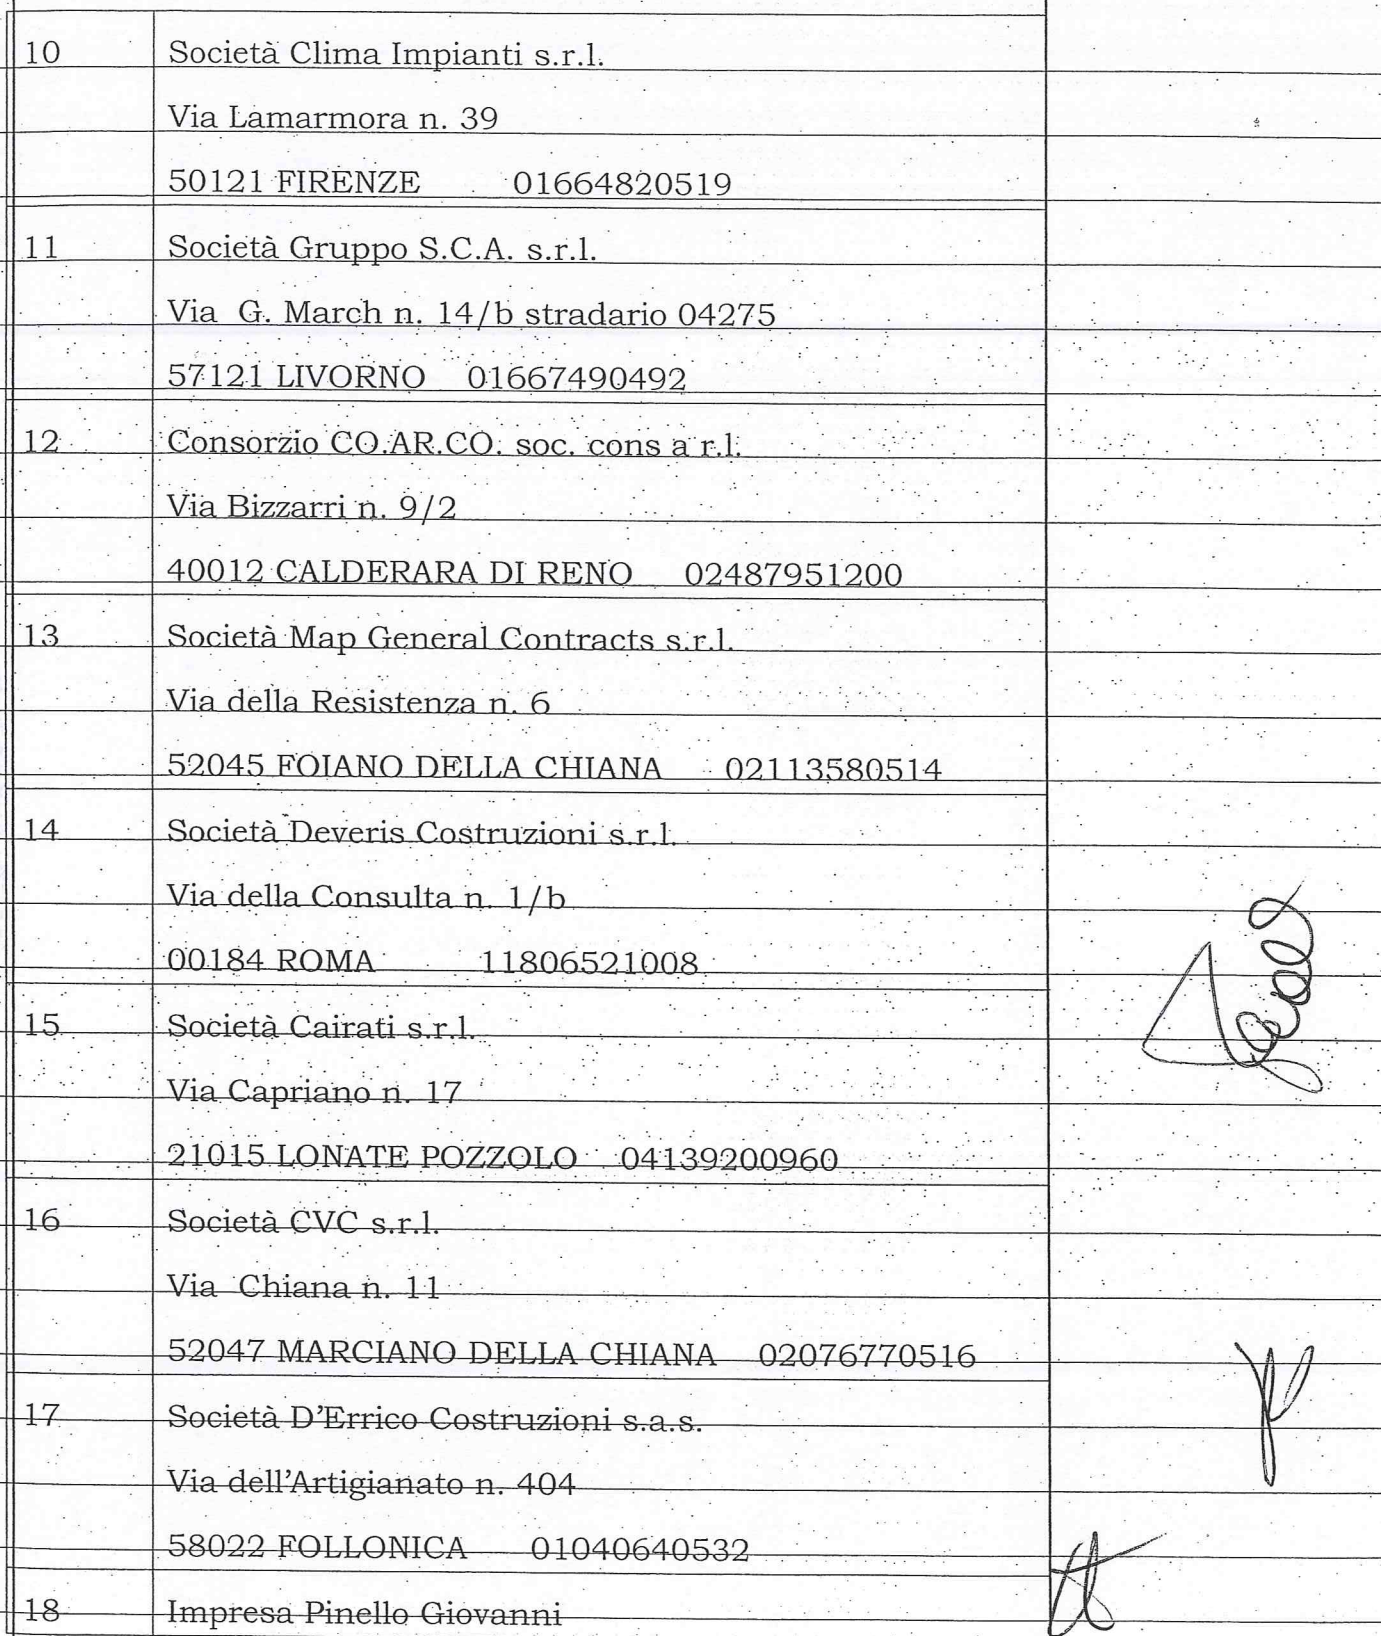 10 Società Clima Impianti s.r.l.
Via Lamarmora n. 39
50121 FIRENZE 01664820519
11 Società Gruppo S.C.A. s.r.l.
Via G. March n. 14/b stradario 04275
57121 LIVORNO 01667490492
12 Consorzio CO.AR.CO. soc. cons a r.l.
Via Bizzarri n. 9/2
40012 CALDERARA DI RENO 02487951200
13 Società Map General Contracts s.r.l.
Via della Resistenza n. 6
52045 FOIANO DELLA CHIANA 02113580514
14 Società Deveris Costruzioni s.r.l.
Via della Consulta n. 1/b
00184 ROMA 11806521008
15 Società Cairati s.r.l.
Via Capriano n. 17
21015 LONATE POZZOLO 04139200960
16 Società CVC s.r.l.
Via Chiana n. 11
52047 MARCIANO DELLA CHIANA 02076770516
17 Società D’Errico Costruzioni s.a.s.
Via dell’Artigianato n. 404
58022 FOLLONICA 01040640532
18 Impresa Pinello Giovanni